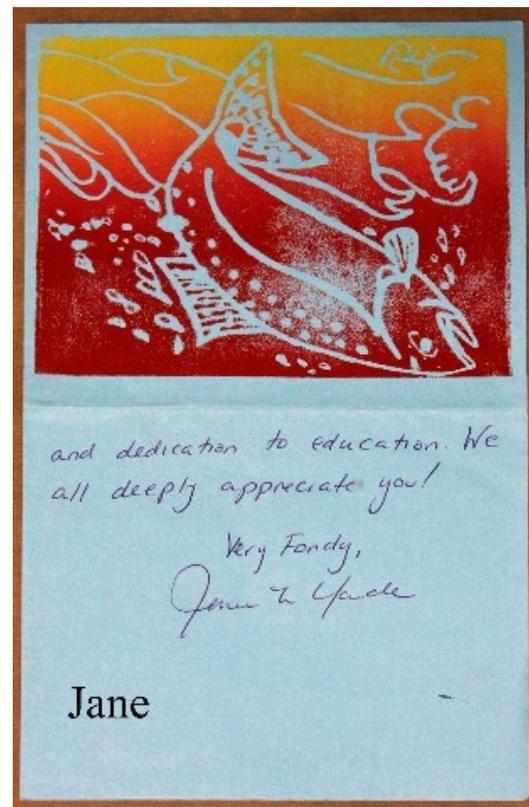 and dedication to education. We
all deeply appreciate you!
Very Fondy,
Jane